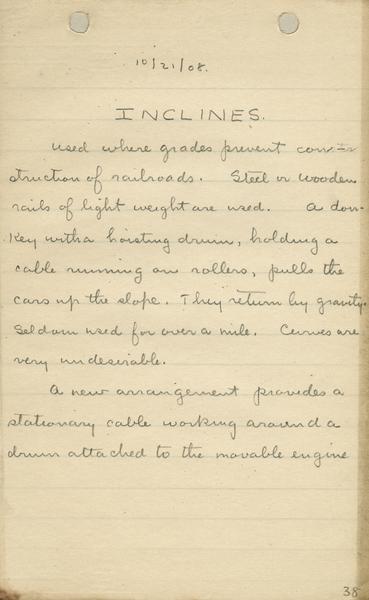 10/21/08.
INCLINES.
Used where grades prevent con-
struction of railroads. Steel or wooden
rails of light weight are used. A don-
key with a hoisting drum, holding a
cable running on rollers, pulls the
cars up the slope. They return by gravity.
Seldom used for over a mile. Curves are
very undesirable.
A new arrangement provides a
stationary cable working around a
drum attached to the movable engine
38